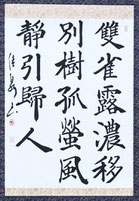 雙雀露濃移
別樹孤螢風
靜引歸人